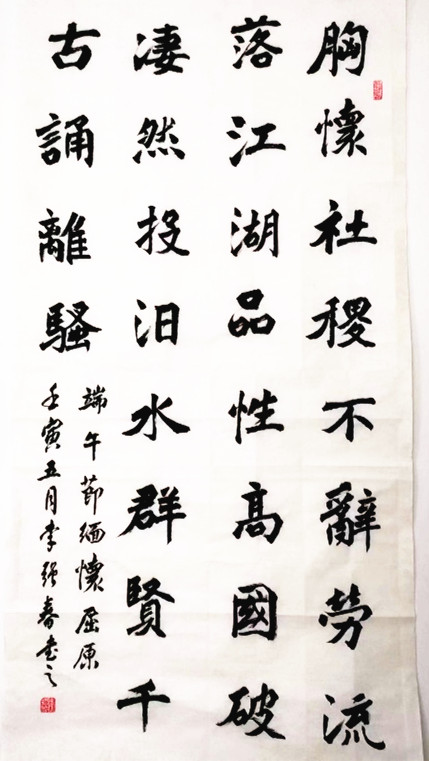 胸懷社稷不辭勞流
落江湖品性高國破
凄然投汨水群賢千
古誦離騷
端午節緬懷屈原
壬寅五月李強春書之